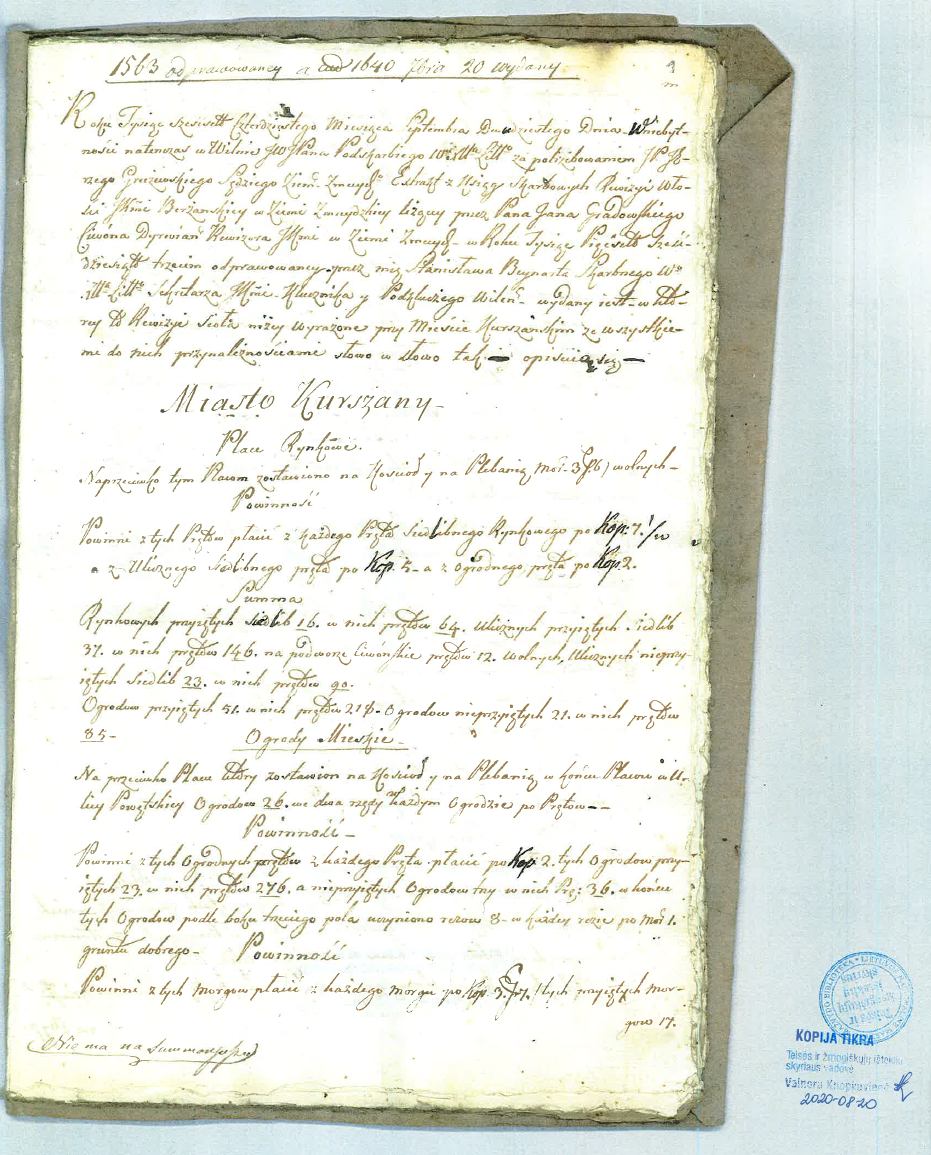 1563 odprawowancy a ad 1640 7bra 20 wydany.
Roku Tysiąc szesset Czterdziestego Miesiąca Septembra Dwudziestego Dnia Wniebyt-
ności natenczas w Wilnie JWJPana Podskarbiego Wo Xa Litto za potrzebowaniem JP Je-
rzego Gruzewskiego Sędziego Ziem. Zmuydo Extrakt z Xsiąg Skarbowych Rewizyi Wło-
ści JKMci Berżanskiey w Ziemi Zmuydzkiey leżącey przez Pana Jana Gradowskiego
Ciwona Dyrwian Rewizora JKMci w Ziemi Zmuydz- w Roku Tysiąc Pięćset Sześć-
dziesiąt trzecim odprawowancy przez mię Stanisława Beynarta Skarbnego Wo
Xa Litto Sekretarza JKMci Klucznika y Podkluczego Wilen- wydany iest w któ-
rey to Rewizyi sioła niżey wyrażone przy Mieście Kurszanskim ze wszystkie-
mi do nich przynależnościami słowo w słowo tak — opisuią się —
Miasto Kurszany-
Place Rynkowe.
Naprzeciwko tym Placom zostawiono na Kościoł y na Plebanią mor. 3 wolnych-
Powinność
Powinni z tych Prętow płacić z każdego Pręta Siedlibnego Rynkowego po Kop: 7.
a z Ulicznego Siedlibnego pręta po Kop. 5- a z ogrodnego pręta po Kop 2.
Summa
Rynkowych przyiętych Siedlib 16. w nich prętow 64. ulicznych przyiętych Siedlib
37. w nich prętow 146. na podworze Ciwońskie prętow 12. wolnych, Ulicznych nieprzy-
iętych siedlib 23. w nich prętow 90.
Ogrodow przyiętych 51. w nich prętow Ogrodow nieprzyiętych 21. w nich prętow
85-
Ogrody Mieskie-
Na przeciwko Place który zostawion na Kościoł y na Plebanią w końcu Placow w U-
licy Ogrodow 26. we dwa rzędy w każdym Ogrodzie po Prętow--
Powinność-
Powinni z tych Ogrodnych prętow z każdego Pręta płacić po Kop 2. tych Ogrodow przy-
iętych 23. w nich prętow 276. a nieprzyiętych Ogrodow trzy w nich Prę: 36. w końcu
tych Ogrodow podle boku trzeciego pola uczyniono rezow 8- w każdey rezie po Mor 1.
gruntu dobrego-
Powinność
Powinni z tych morgow płacić z każdego morgu po Kop. 3. tych przyiętych mor-
gow 17.
Nie ma na
KOPIJA TIKRA
Teisės ir žmogiškųjų išteklių
skyriaus vadovė
Vainora Knopkuvienė
2020-08-20